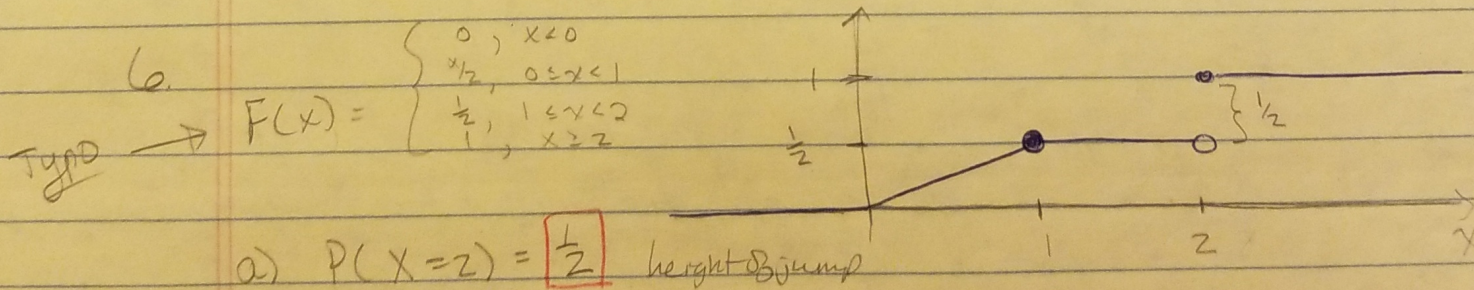 6.
Typo → F(x) = { 0, x<0
x/2, 0≤x<1
1/2, 1≤x<2
1, x≥2
1
1/2
1/2
1 2
a) P(X=2) = 1/2 height of jump